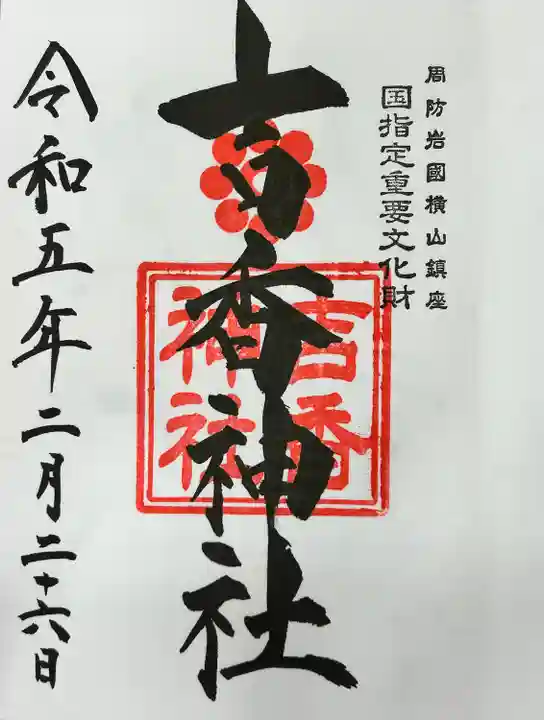 周防岩國横山鎮座
国指定重要文化財
吉香神社
吉香
神社
令和五年二月二十六日